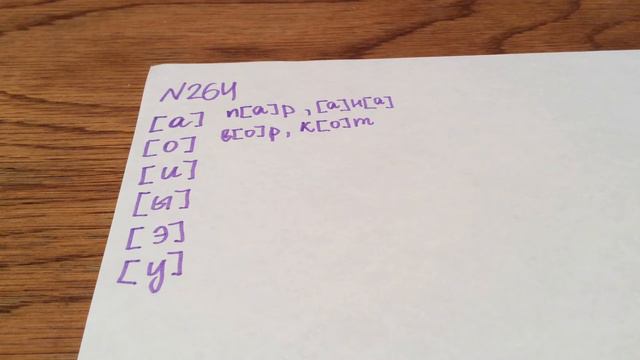 N264
[а] п[а]р, [а]н[а]
[о] в[о]р, к[о]т
[и]
[ы]
[э]
[у]